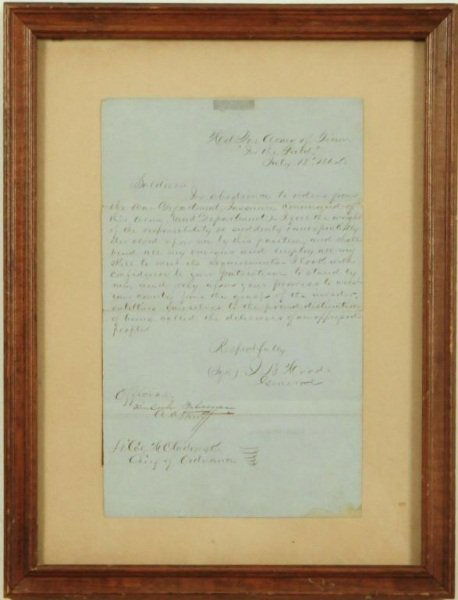 Hd Qrs Army of Tenn
"In the Field"
July 18th 1864
Soldiers
In obedience to orders from
the War Department I assume command of
this Army and Department. I feel the weight
of the responsibility so suddenly & unexpectedly
devolved upon me by this position, and shall
bend all my energies and employ all my
skill to meet its requirements. I look with
confidence to your patriotism to stand by
me, and rely upon your prowess to
your country from the grasp of the invader,
entitling yourselves to the proud distinction
of being called the deliverers of an oppressed
people
Respectfully
J B Hood
General
Official
Lt Col
Chief of Ordnance